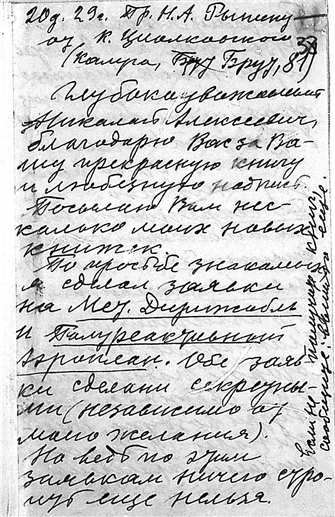 20 д. 29 г. Пр. Н. А. Рынину —
от К. Циолковского
(Калуга, Брут, 81)
Глубокоуважаемый
Николай Алексеевич,
благодарю Вас за Ва-
шу прекрасную книгу
и любезную надпись.
Посылаю Вам нес-
колько моих новых
книжек.
По просьбе знакомых
я сделал заявки
на Мет. Дирижабль
и Полуреактивный
Аэроплан. Обе заяв-
ки сделаны секретны-
ми (независимо от
моего желания).
Но ведь по этим
заявкам ничего стро-
ить еще нельзя.
Если не получите книг,
сообщите: вышлю еще.